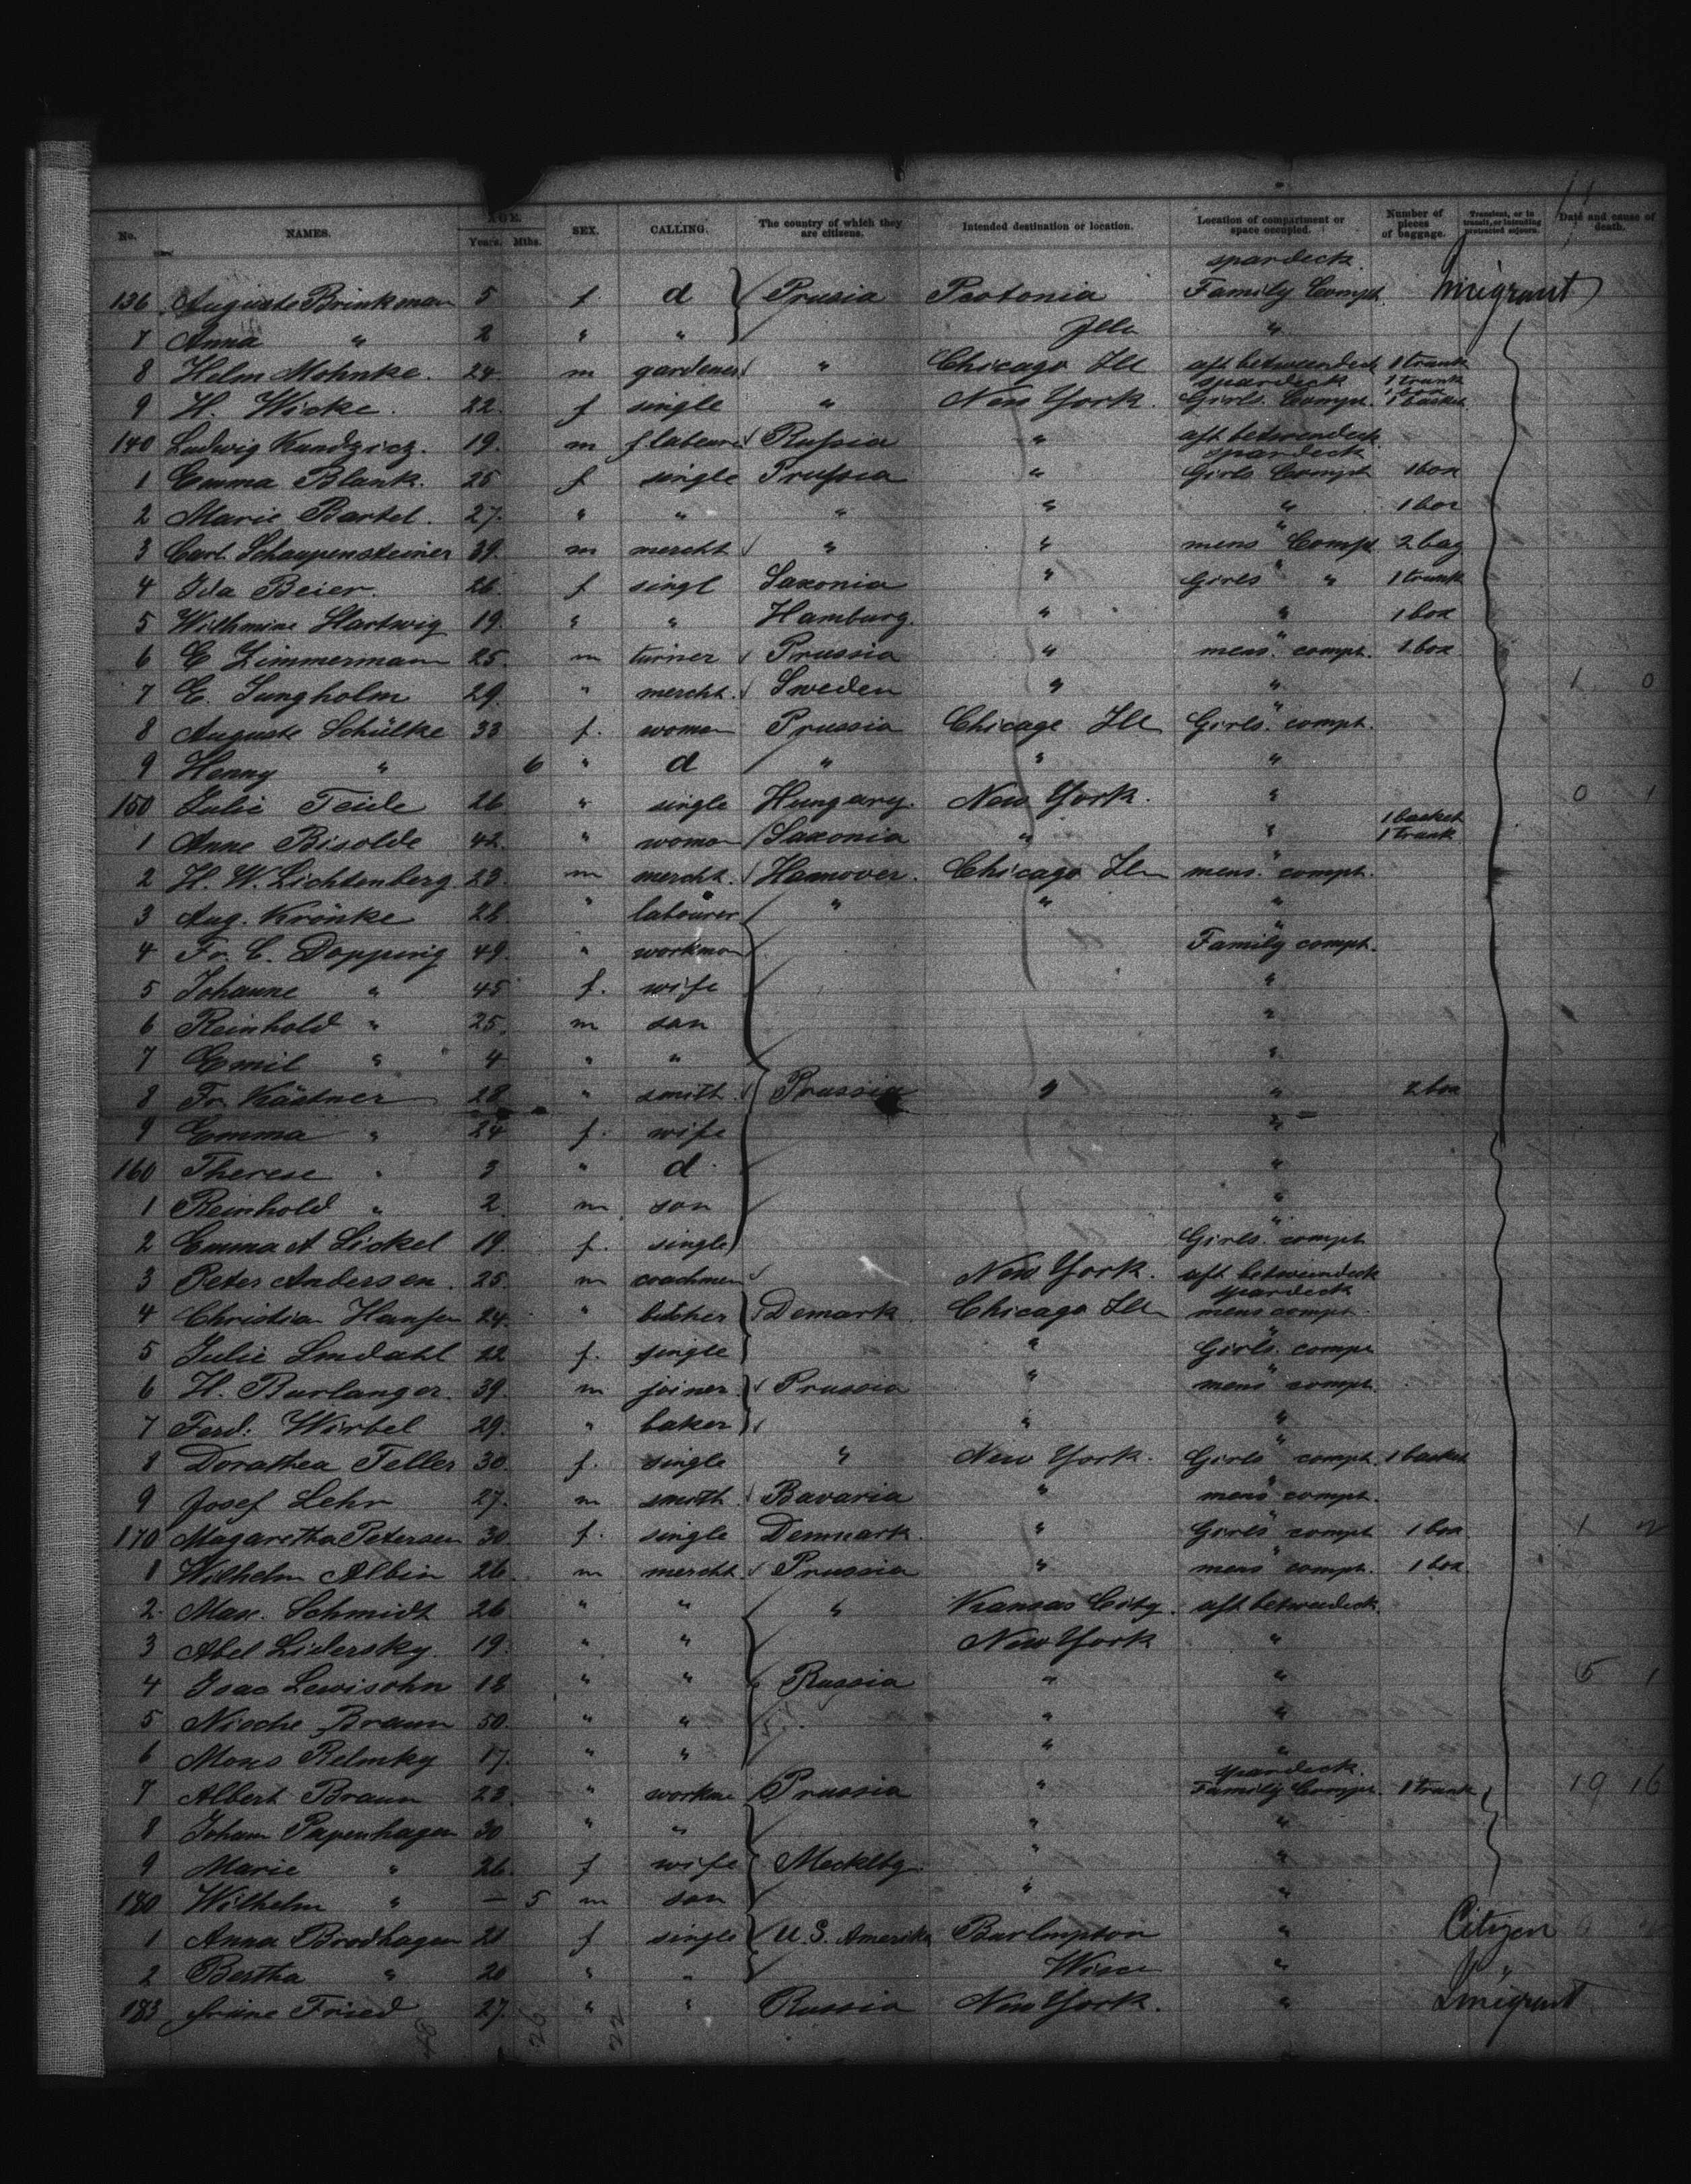 No. NAMES. AGE. Years. Mths. SEX. CALLING. The country of which they are citizens. Intended destination or location. Location of compartment or space occupied. Number of pieces of baggage. Transient, or in transit, or intending protracted sojourn. Date and cause of death.
spardeck
136 Auguste Brinkman 5 f. d Prusia Peotonia Family Compt. Imigrant
7 Anna " 2 " " Ills "
8 Helm Mohnke. 24 m gardener " Chicago Ill aft betweendeck 1 trunk
spardeck 1 trunk
9 H. Wicke. 22. f single " New York. Girls. Compt. 1 basket
140 Ludwig Kundzicz. 19. m f labourer Russia " aft betweendeck
spardeck
1 Emma Blank. 25 f single Prussia " Girls Compt 1 box
2 Marie Bartel. 27. " " " " " 1 box
3 Carl Schaupensteiner 39. m mercht " " mens Compt 2 bag
4 Ida Beier. 26. f singl Saxonia " Girls " 1 trunk
5 Wilhmine Hartwig 19. " " Hamburg. " " 1 box
6 C Zimmermann 25. m turner Prussia " mens compt. 1 box
7 E. Sungholm 29. " mercht. Sweden " " 1 0
8 Auguste Schülke 33 f. woman Prussia Chicago Ill Girls. compt.
9 Henny " 6 " d " " "
150 Julie Teide 26 " single Hungary. New York. " 0 1
1 basket
1 Anne Bisolde 42. " woman Saxonia " " 1 trunk
2 H. W. Lichtenberg 23. m mercht. Hannover. Chicago Ill mens. compt.
3 Aug. Krönke 28. " labourer " " "
4 Fr. C. Dopping 49. " workman Family compt.
5 Johanne " 45 f. wife "
6 Reinhold " 25. m son "
7 Emil " 4 " " "
8 Fr. Kästner 28 " smith Prussia " " 2 box
9 Emma " 24 f. wife "
160 Therese " 3 " d. "
1 Reinhold " 2. m son "
2 Emma A Lickel 19. f. single Girls. compt
3 Peter Andersen. 25. m coachmen New York. aft betweendeck
spardeck
4 Christian Hansen 24. " butcher Demark Chicago Ill mens compt.
5 Julie Lindahl 22 f. single " Girls. compt
6 H. Burlanger. 39. m joiner Prussia " mens compt.
7 Ferd. Wirbel 29. " baker " "
8 Dorathea Teller 30. f. single " New York. Girls compt. 1 basket
9 Josef Lehr 27. m smith Bavaria " mens compt.
170 Magaretha Petersen 30 f. single Denmark. " Girls compt 1 box 1 2
1 Wilhelm Albin 26. m mercht Prussia " mens compt. 1 box
2. Max. Schmidt 26 " " " Kansas City. aft betweendeck.
3 Abel Lidersky. 19. " " New York "
4 Isac Lewisohn 18 " " Russia " " 5 1
5 Nische Braun 50. " " " "
6 Mons Relmky 17. " " " "
spardeck.
7 Albert Braun 23. " workm Prussia " Family Compt. 1 trunk 19 16
8 Johann Papenhagen 30 " " " "
9 Marie " 26. f wife Mecklbg. " "
180 Wilhelm " — 5 m son " "
1 Anna Brodhagen 21 f single U. S. Amerika Burlington " Citizen
2 Bertha " 20 " " Wisc " "
183 Fried 27. " " Russia New York. " Imigrant